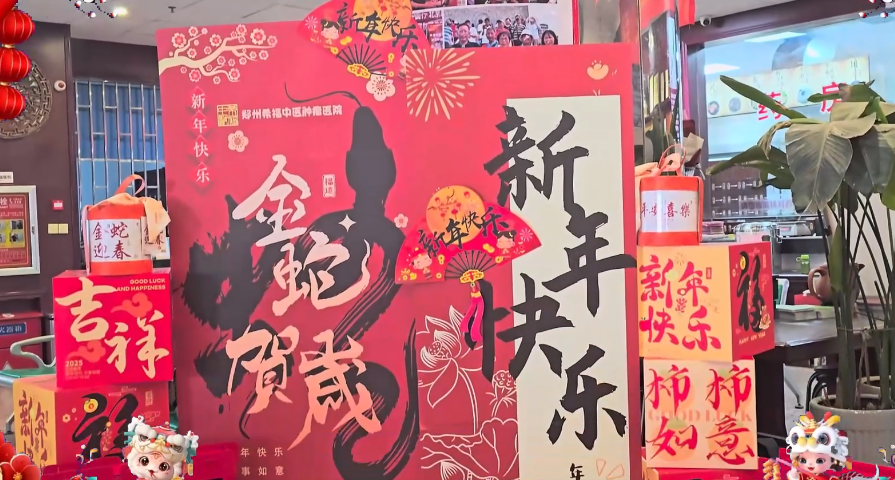 新年快乐
新年快乐
郑州希福中医肿瘤医院
金蛇
賀歲
福运
新年快乐
新年快乐
年快乐
事如意
年
药房
金蛇
迎春
GOOD LUCK
AND HAPPINESS
吉祥
2025
新年
福
平安喜樂
新年
快乐
福
柿柿
如意
GOOD LUCK